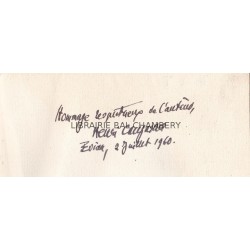 Hommage respectueux de l'auteur,
LIBRAIRIE BAL CHAMBERY
Evian, 2 Juillet 1960.